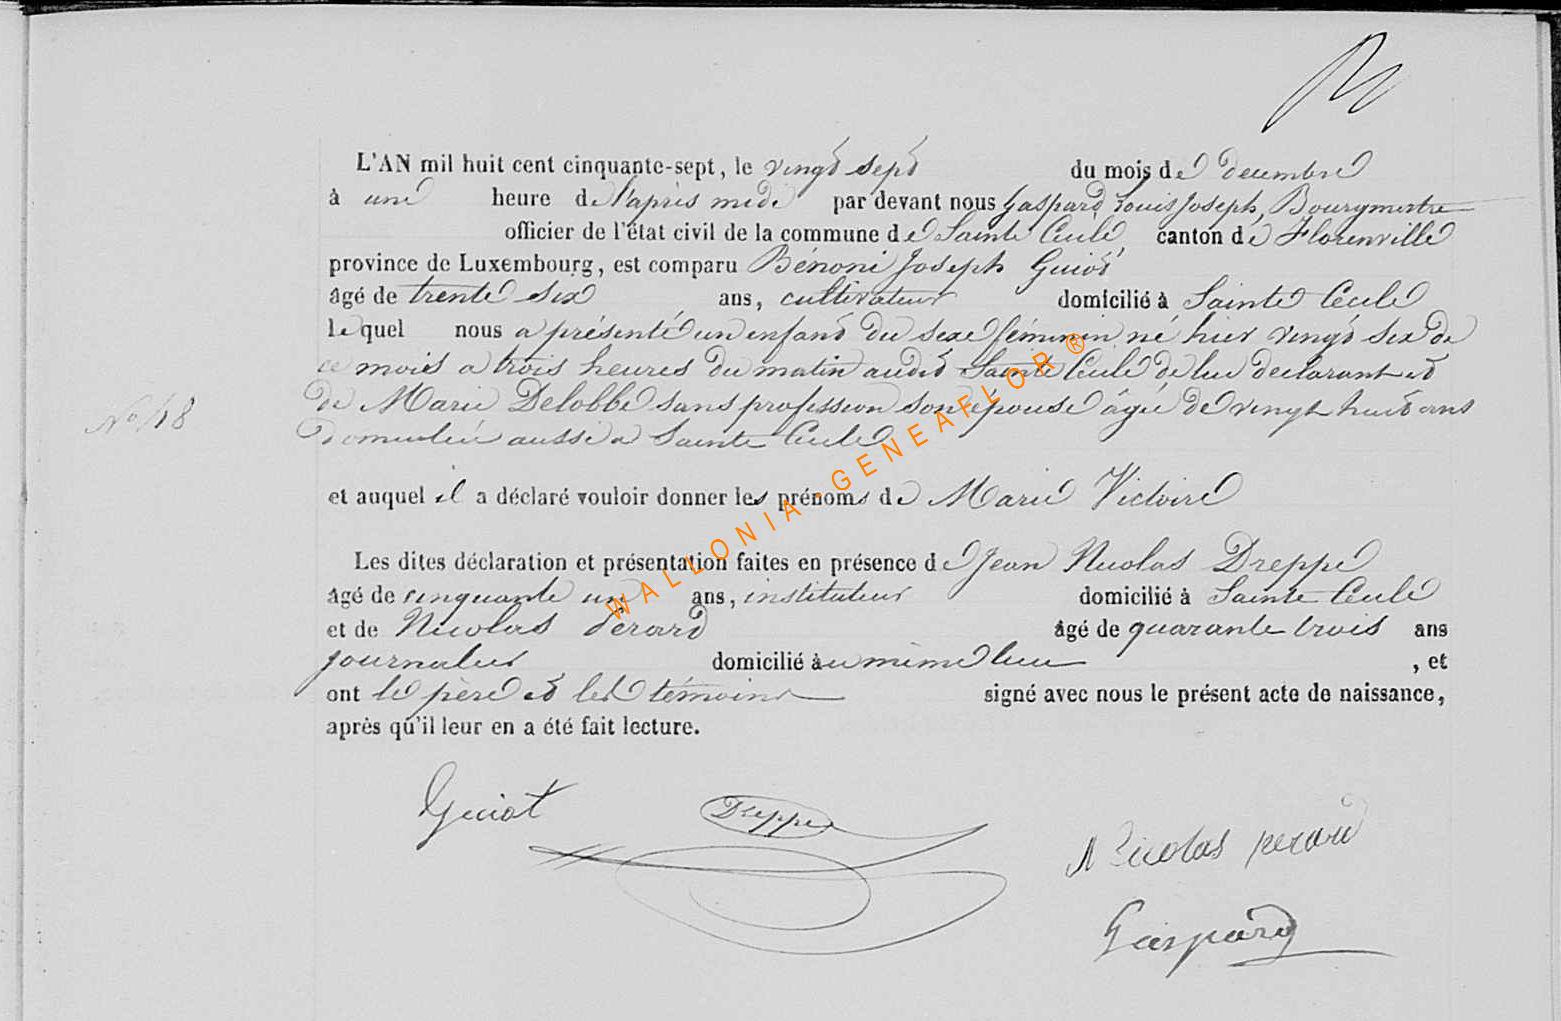 L'AN mil huit cent cinquante-sept, le vingt sept du mois de decembre
à une heure de l'après midi par devant nous Gaspard Louis Joseph, Bourgmestre
officier de l'état civil de la commune de Sainte Cecile, canton de Florenville
province de Luxembourg, est comparu Bénoni Joseph Guiot
âgé de trente six ans, cultivateur domicilié à Sainte Cecile
lequel nous a présenté un enfant du sexe féminin né hier vingt six de
ce mois a trois heures du matin audit Sainte Cecile de lui declarant et
No 18
de Marie Delobbe sans profession son épouse âgée de vingt huit ans
domiciliée aussi a Sainte Cecile
et auquel il a déclaré vouloir donner les prénoms de Marie Victoire
Les dites déclaration et présentation faites en présence de Jean Nicolas Dreppe
âgé de cinquante un ans, instituteur domicilié à Sainte Cecile
et de Nicolas Pérard âgé de quarante trois ans
journalier domicilié au même lieu , et
ont le père et les témoins signé avec nous le présent acte de naissance,
après qu'il leur en a été fait lecture.
Guiot Dreppe Nicolas perard
Gaspard
WALLONIA-GENEAFLOR ®